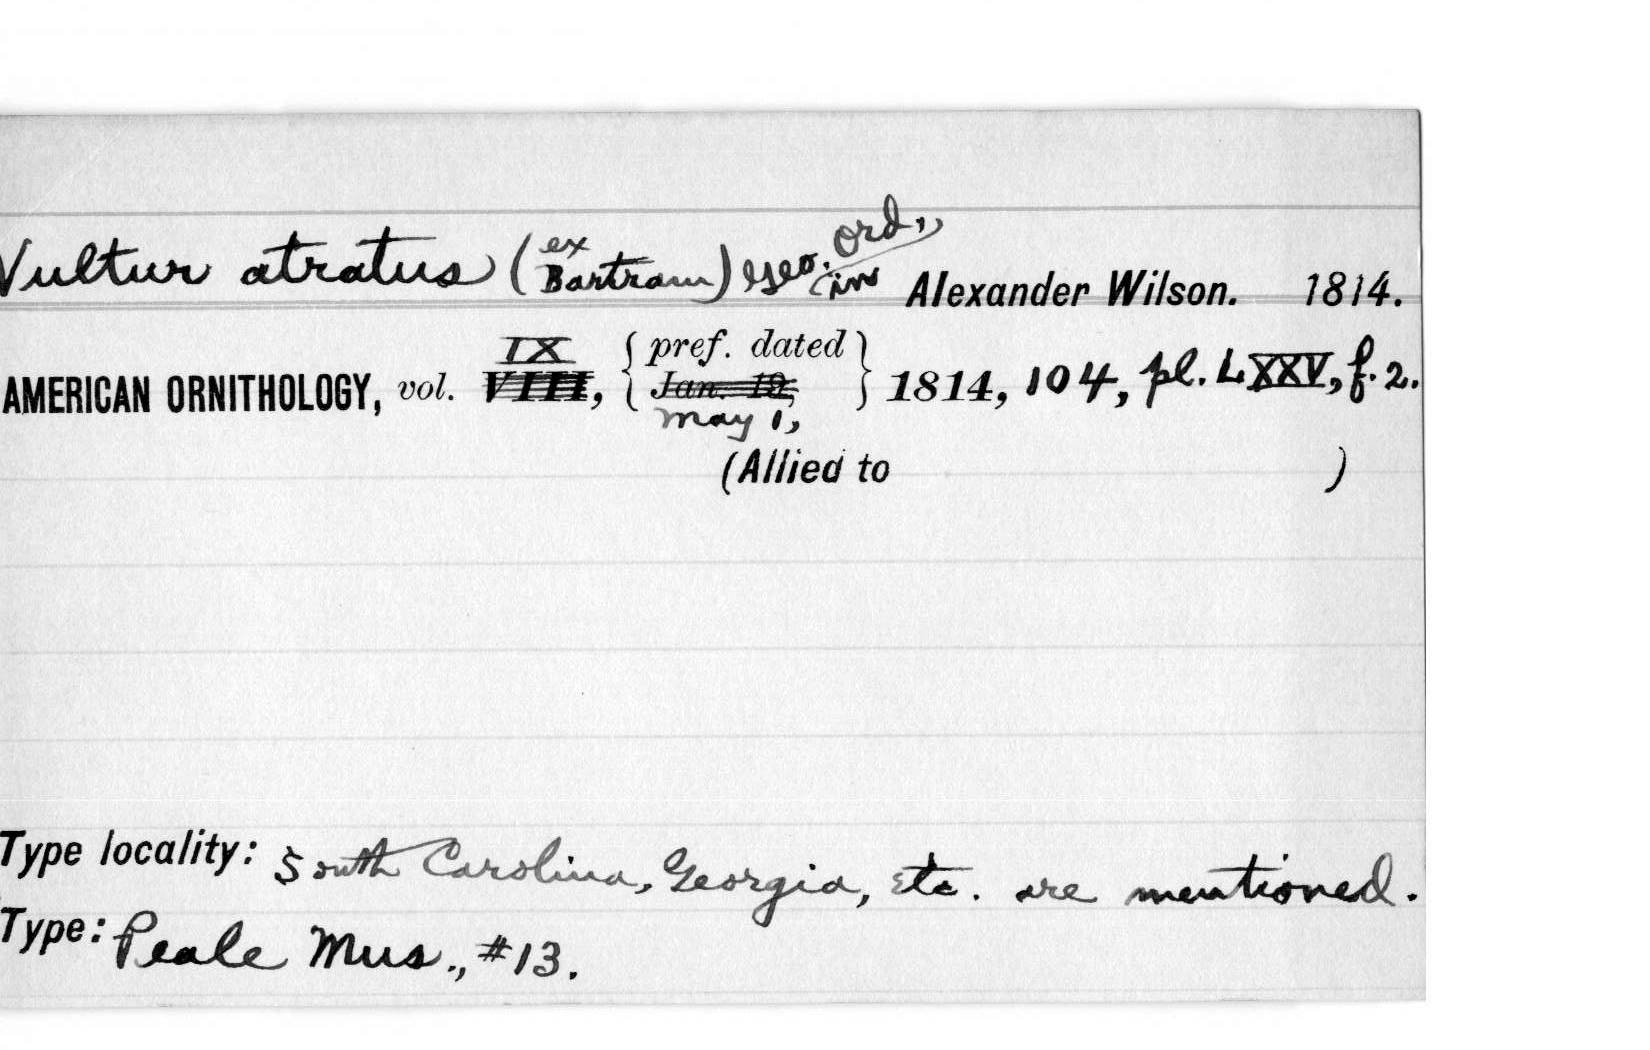 Vultur atratus (ex Bartram) Geo. Ord, in Alexander Wilson. 1814.
IX
AMERICAN ORNITHOLOGY, vol. VIII, { pref. dated Jan. 19, May 1, } 1814, 104, pl. LXXV, f. 2.
(Allied to )
Type locality: South Carolina, Georgia, etc. are mentioned.
Type: Peale Mus., #13.